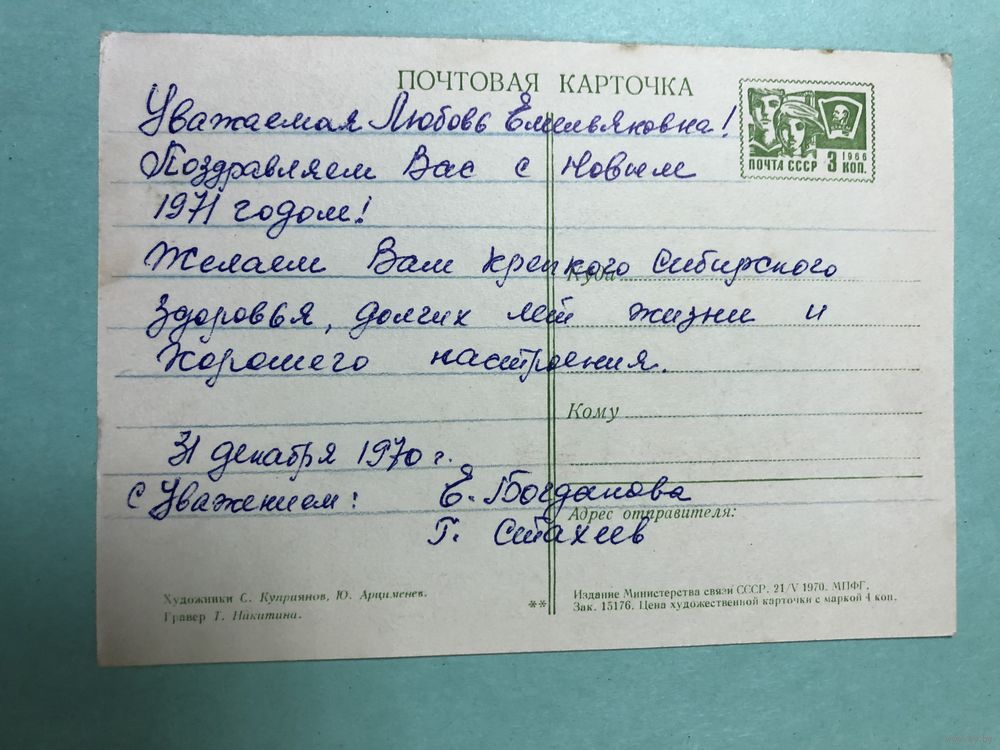 ПОЧТОВАЯ КАРТОЧКА
ПОЧТА СССР 3 1966 КОП.
Уважаемая Любовь Емельяновна!
Поздравляем Вас с Новым
1971 годом!
Желаем Вам крепкого Сибирского
Здоровья, долгих лет жизни и
хорошего настроения.
31 декабря 1970 г.
С Уважением: Е. Богданова
Г. Стахеев
Куда
Кому
Адрес отправителя:
Художники С. Куприянов, Ю. Арцименев.
Гравер Т. Никитина.
**
Издание Министерства связи СССР. 21/V 1970. МПФГ.
Зак. 15176. Цена художественной карточки с маркой 4 коп.